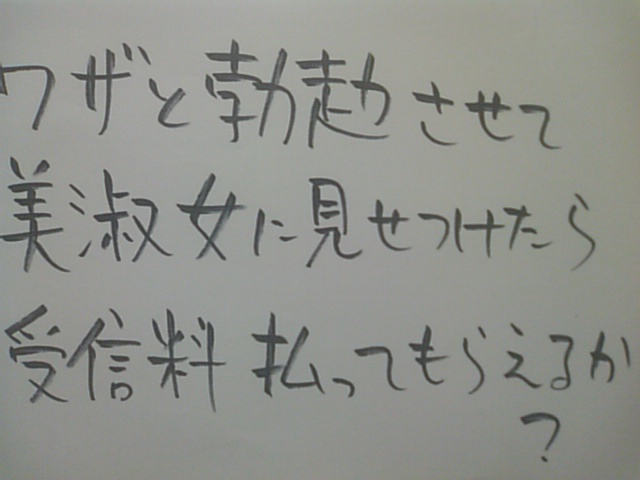 ワザと勃起させて
美淑女に見せつけたら
受信料払ってもらえるか
?